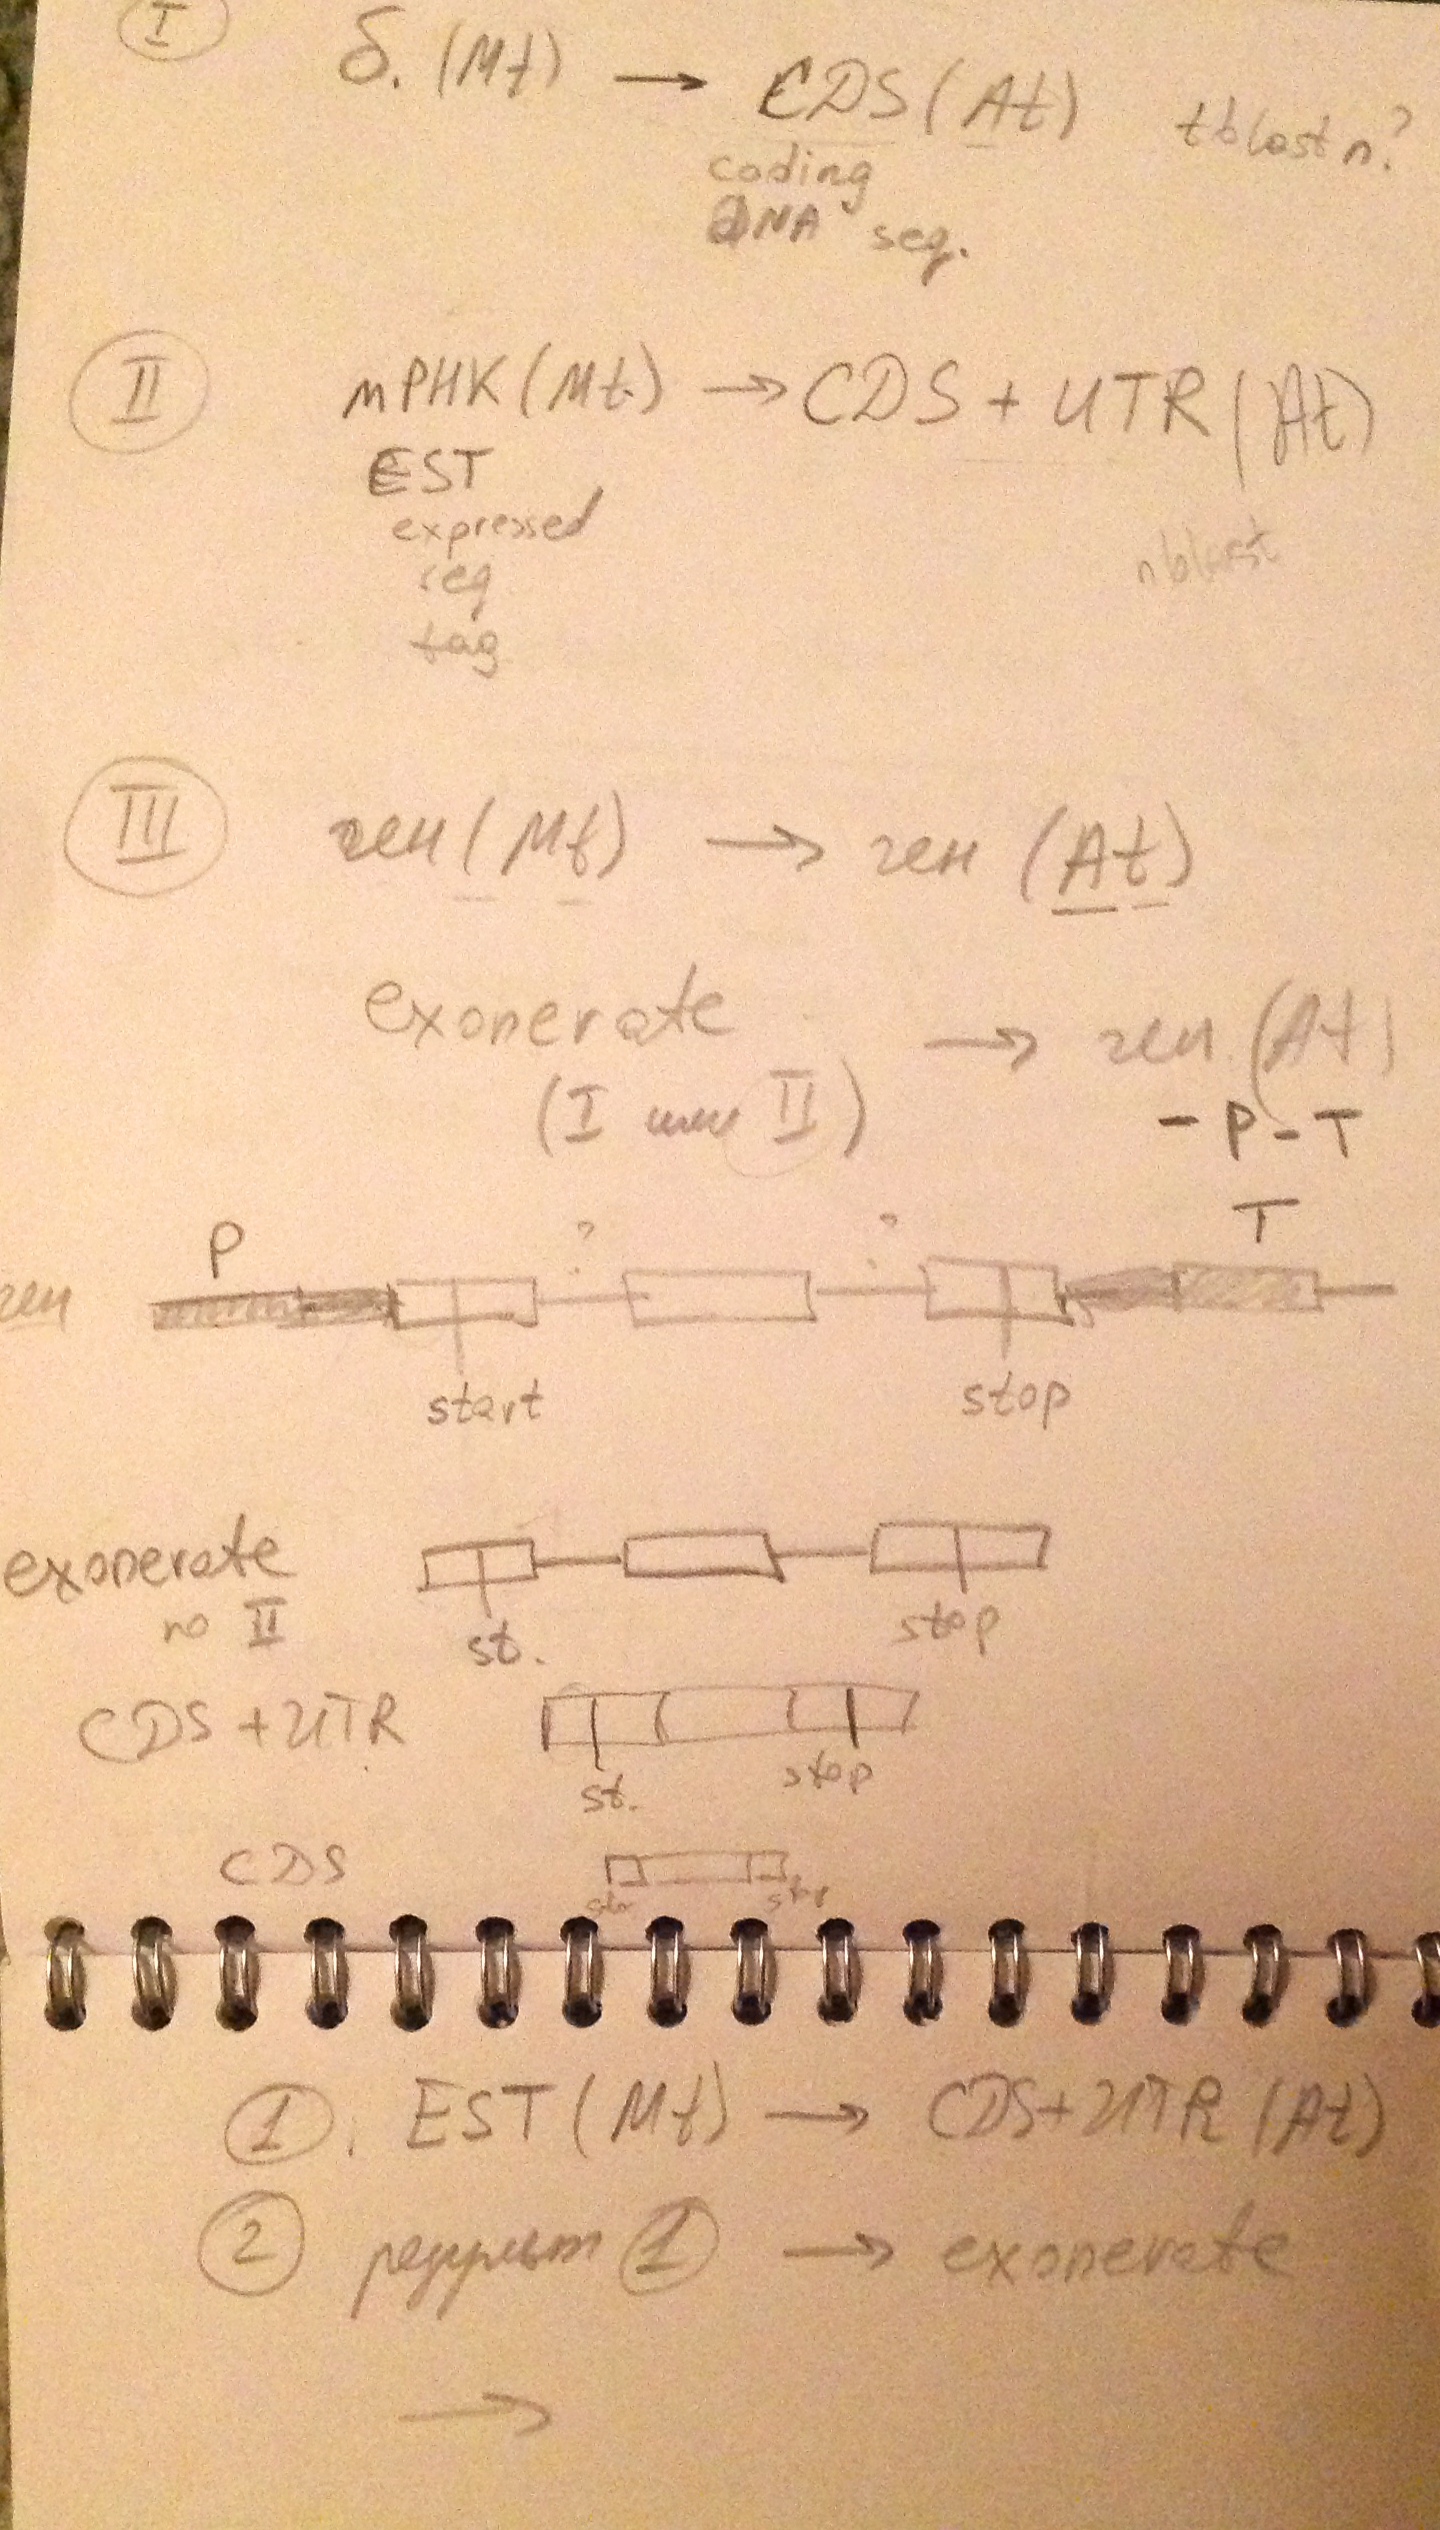 I
б. (Mt) → CDS (At) tblastn?
coding
DNA seq.
II
мРНК (Mt) → CDS + UTR (At)
EST
expressed
seq
tag
nblast
III
ген (Mt) → ген (At)
exonerate → ген (At)
(I или II)
- P - T
P ? ? T
ген
start stop
exonerate
по II
st. stop
CDS + UTR
st. stop
CDS
1. EST (Mt) → CDS + UTR (At)
2 результ 1 → exonerate
→